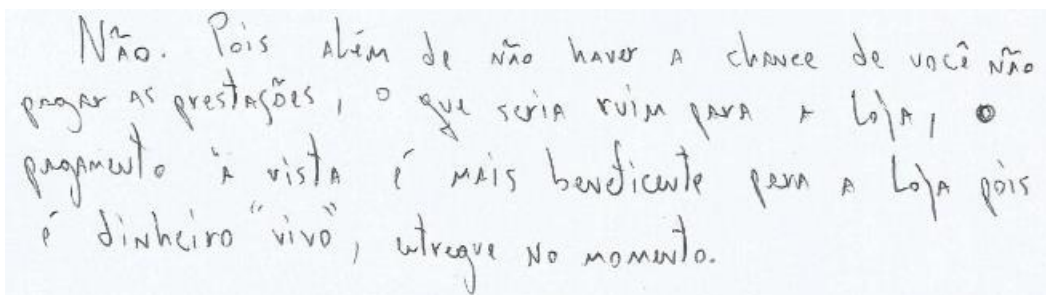 Não. Pois além de não haver a chance de você não
pagar as prestações, o que seria ruim para a loja, o
pagamento à vista é mais beneficente para a loja pois
é dinheiro "vivo", entregue no momento.